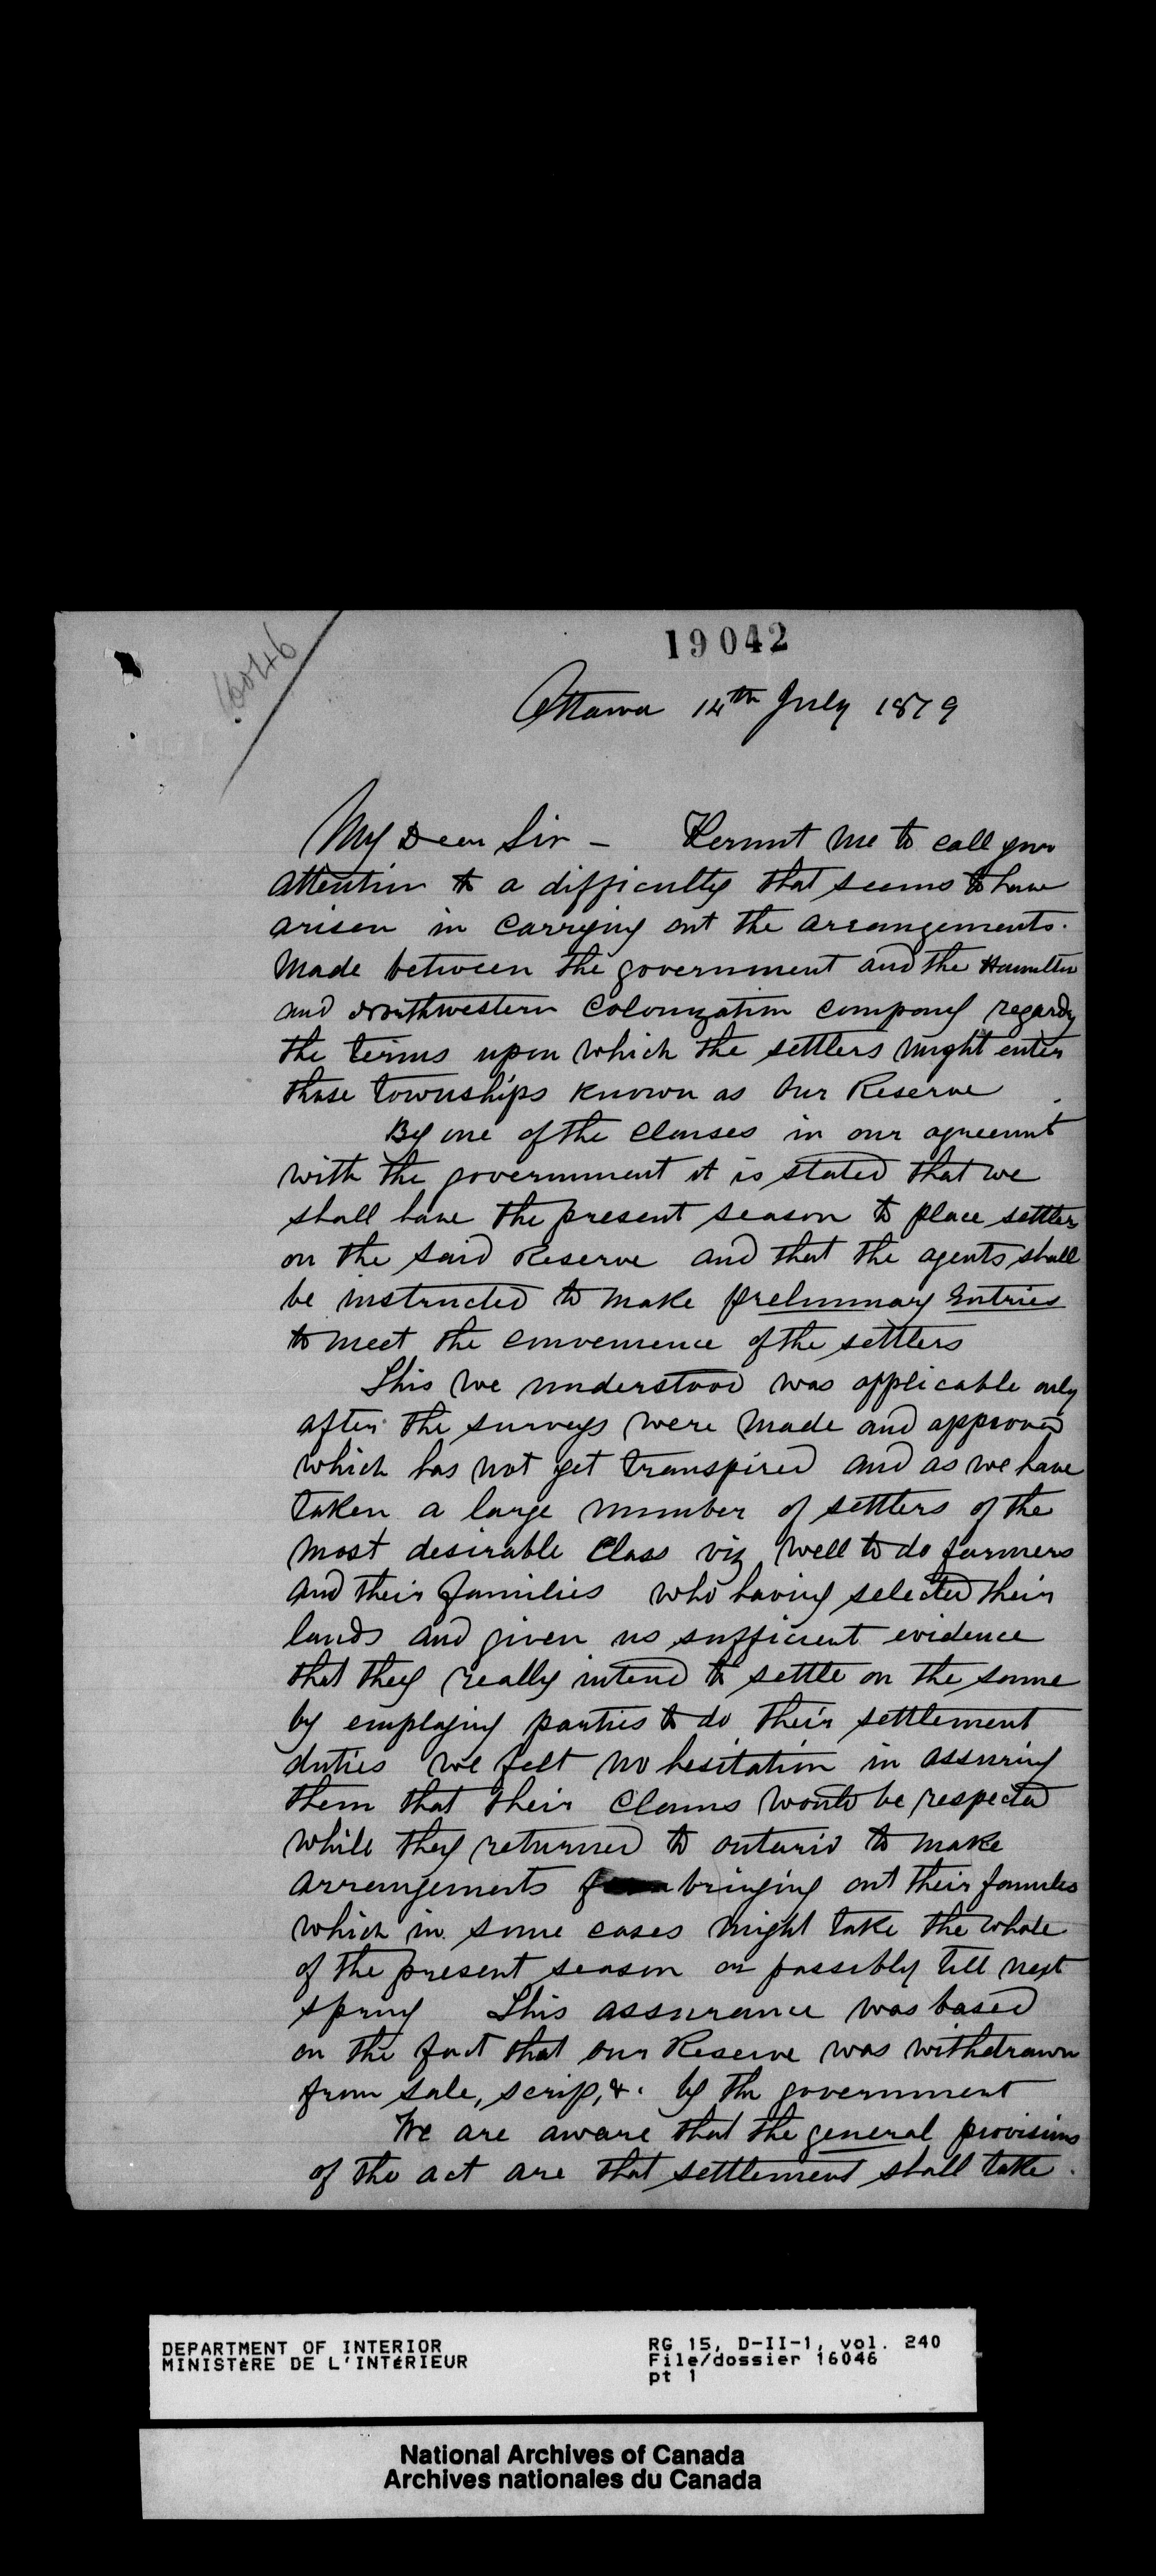 16046
19042
Ottawa 14th July 1879
My Dear Sir – Permit me to call your
attention to a difficulty that seems to have
arisen in carrying out the arrangements
made between the government and the Hamilton
and Northwestern Colonization Company regardg
the terms upon which the settlers might enter
those townships known as our Reserve
By one of the clauses in our agreemnt
with the government it is stated that we
shall have the present season to place settlers
on the said Reserve and that the agents shall
be instructed to make preliminary Entries
to meet the convenience of the settlers
This we understood was applicable only
after the surveys were made and approved
which has not yet transpired and as we have
taken a large number of settlers of the
most desirable class viz well to do farmers
and their families who having selected their
lands and given us sufficient evidence
that they really intend to settle on the same
by employing parties to do their settlement
duties we felt no hesitation in assuring
them that their claims would be respected
while they returned to Ontario to make
arrangements bringing out their families
which in some cases might take the whole
of the present season or possibly till next
spring This assurance was based
on the fact that our Reserve was withdrawn
from sale, scrip, &. by the government
We are aware that the general provisions
of the act are that settlement shall take
DEPARTMENT OF INTERIOR
MINISTÈRE DE L'INTÉRIEUR
RG 15, D-II-1, vol. 240
File/dossier 16046
pt 1
National Archives of Canada
Archives nationales du Canada